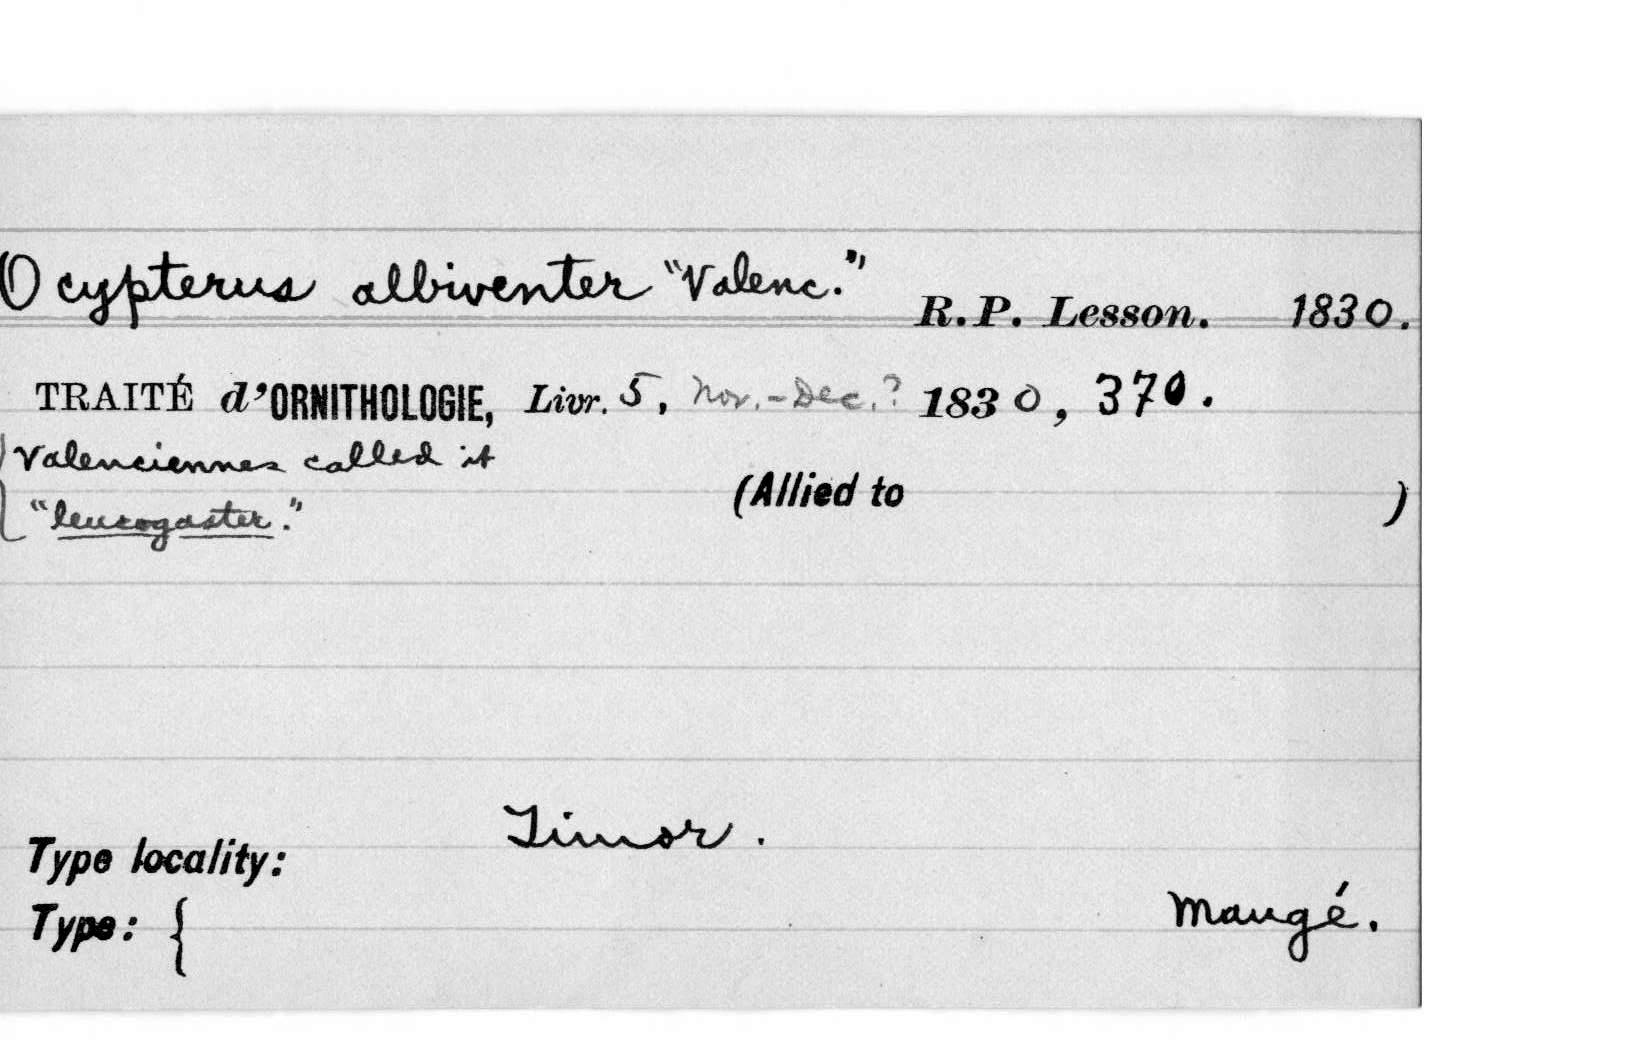 Ocypterus albiventer "Valenc." R.P. Lesson. 1830.
TRAITÉ d'ORNITHOLOGIE, Livr. 5, Nov.-Dec.? 1830, 370.
Valenciennes called it
"leucogaster."
(Allied to )
Timor.
Type locality:
Maugé.
Type: {